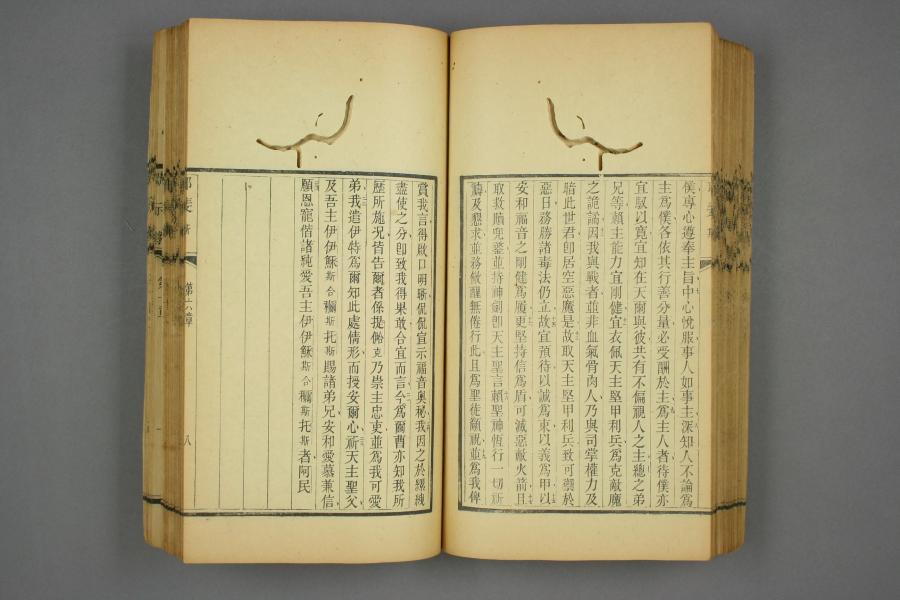 僕專心遵奉主旨中心悅服事人如事主深知人不論為
主為僕各依其行善分量必受酬於主為主人者待僕亦
宜馭以寬宜知在天爾與彼共有不偏視人之主總之弟
兄等賴主能力宜剛健宜衣佩天主堅甲利兵為克敵魔
之詭譎因我與戰者並非血氣骨肉人乃與司掌權力及
暗此世君卽居空惡魔是故取天主堅甲利兵致可禦於
惡日務勝諸毒法仍立故宜預待以誠為束以義為甲以
安和福音之剛健為履更堅持信為盾可滅惡敵火箭且
取救贖兜鍪並持神劍卽天主聖言賴聖神恆行一切祈
禱及懇求並務儆醒無倦行此且為聖徒籲視並為我俾
賞我言得啟口明暢侃侃宣示福音奧祕我因之於縲絏
盡使之分卽致我得果敢合宜而言今為爾曹亦知我所
歷所施況皆告爾者係提俻克乃崇主忠吏並為我可愛
弟我遣伊特為爾知此處情形而授安爾心祈天主聖父
及吾主伊伊穌斯合穪斯托斯賜諸弟兄安和愛慕兼信
願恩寵偕諸純愛吾主伊伊穌斯合穪斯托斯者阿民
第六章
八